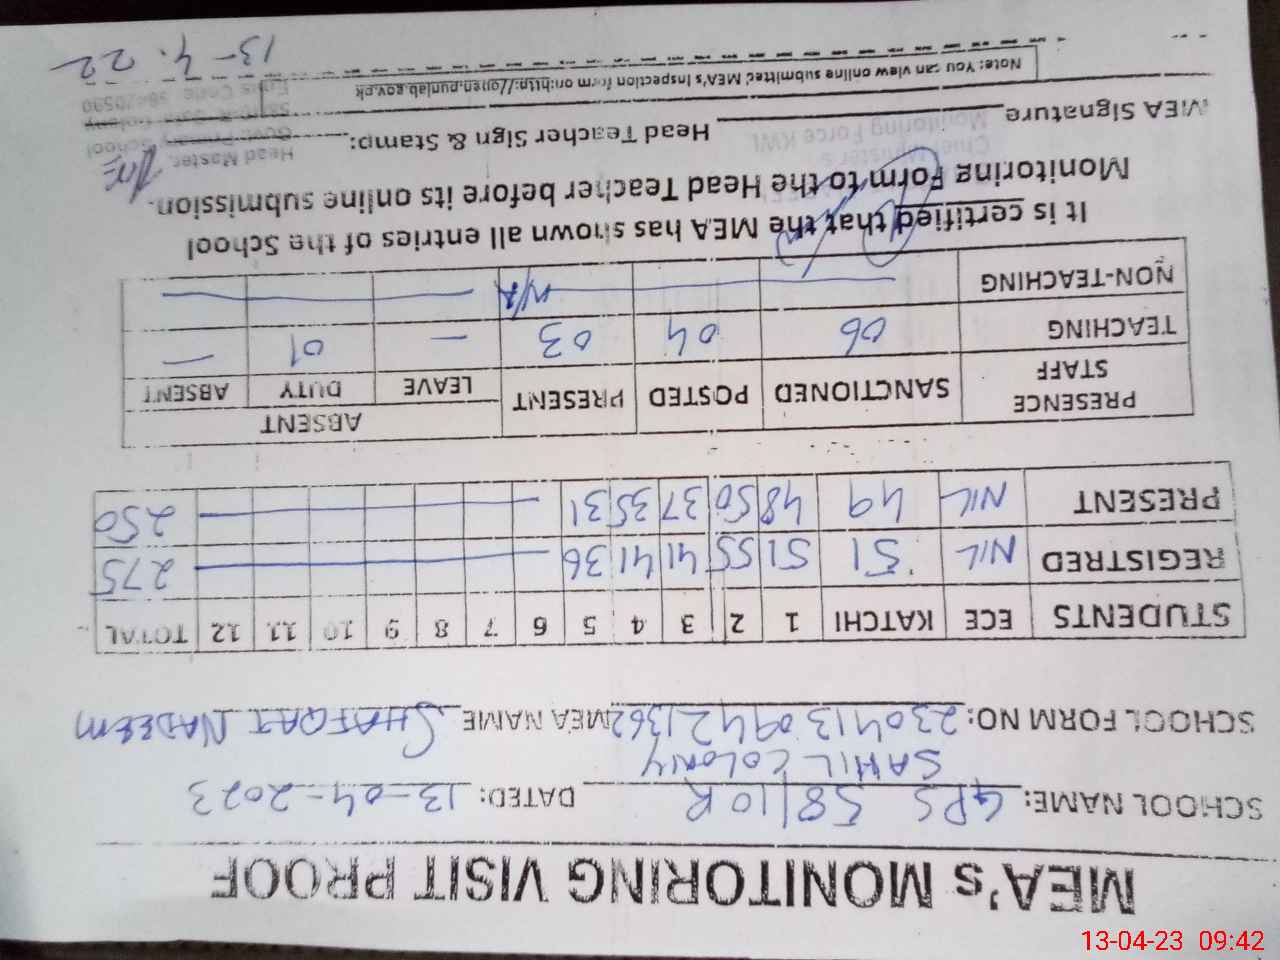 MEA's MONITORING VISIT PROOF
SCHOOL NAME: GPS 58/10R DATED: 13-04-2023
SAHIL COLONY
SCHOOL FORM NO: 23041309421362 MEA NAME SHAFQAT NADEEM
STUDENTS ECE KATCHI 1 2 3 4 5 6 7 8 9 10 11 12 TOTAL
REGISTRED NIL 51 51 55 41 41 36 275
PRESENT NIL 49 48 50 37 35 31 250
PRESENCE STAFF SANCTIONED POSTED PRESENT ABSENT
LEAVE DUTY ABSENT
TEACHING 06 04 03 — 01 —
NON-TEACHING N/A
It is certified that the MEA has shown all entries of the School
Monitoring Form to the Head Teacher before its online submission.
MEA Signature Head Teacher Sign & Stamp:
Chief Minister's
Monitoring Force KWL
Head Master,
Govt. Primary School
Note: You can view online submitted MEA's Inspection form on:http://open.punjab.gov.pk
13-4-22
13-04-23 09:42